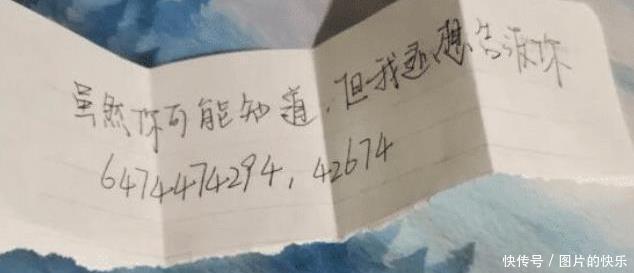 虽然你可能知道,但我还想告诉你
6474474294,42674
快传号/图片的快乐